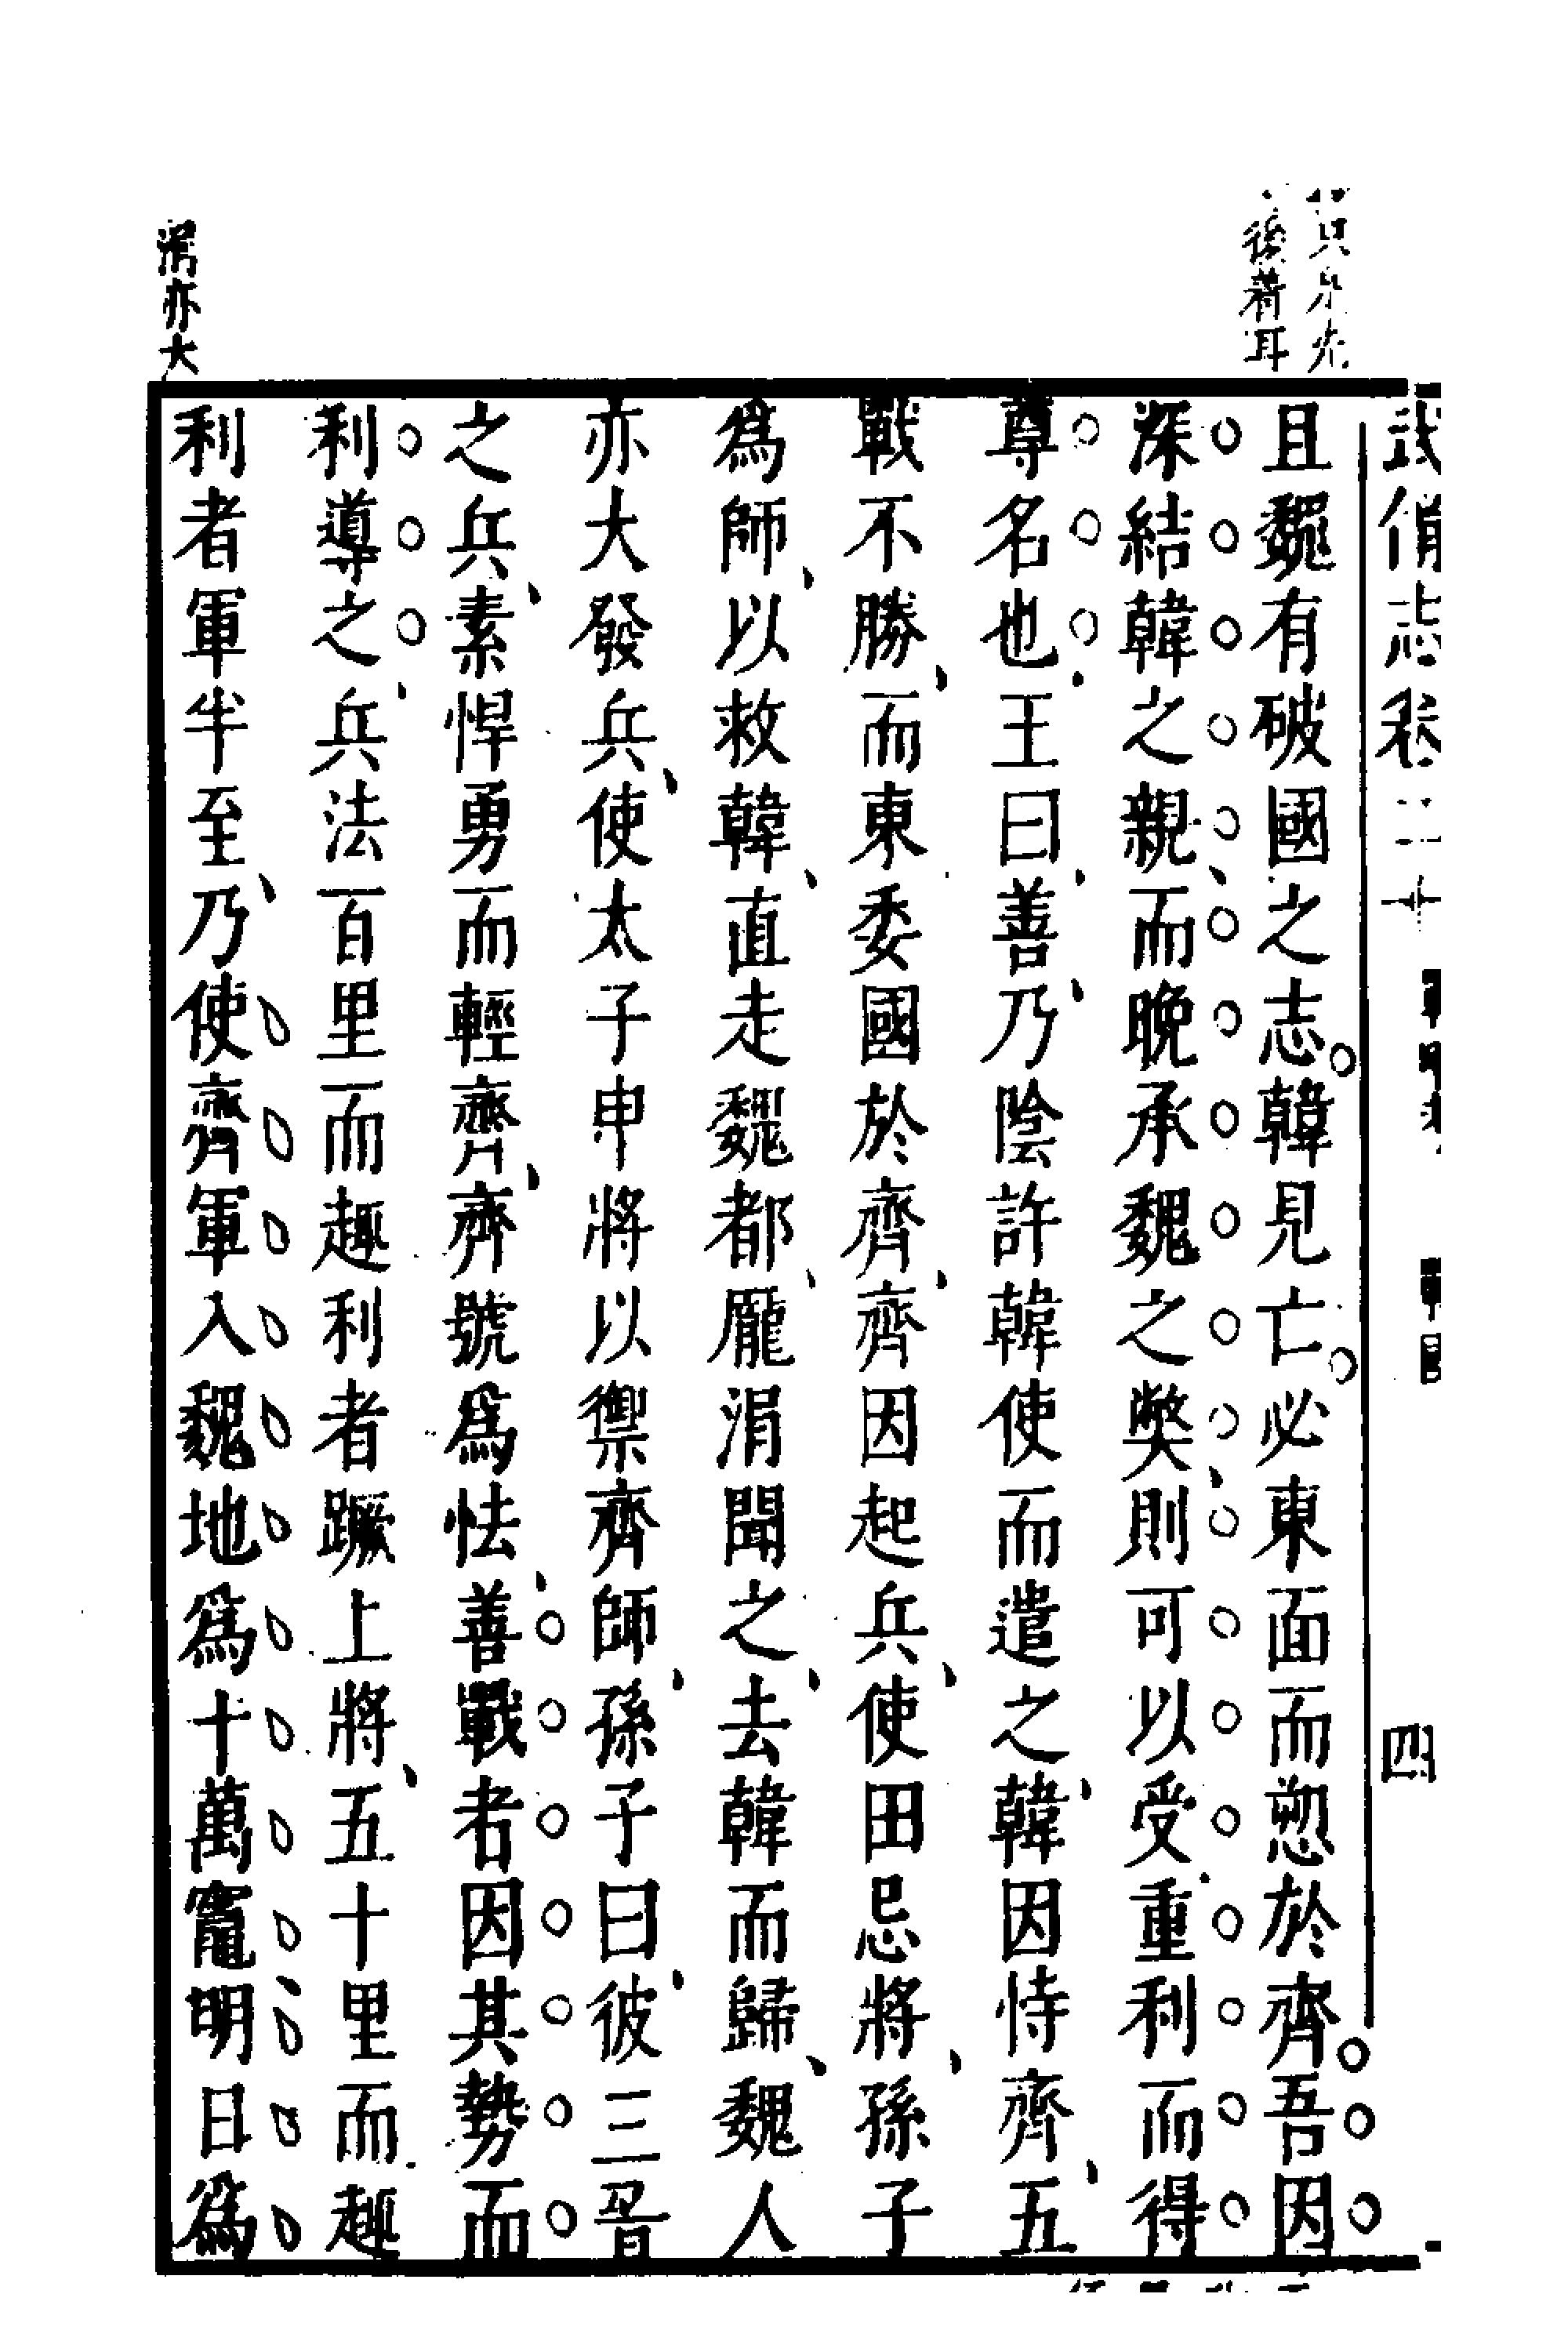 武備志卷二十
四
後着耳
涓亦大
且魏有破國之志韓見亡必東面而愬於齊吾因
深結韓之親而晚承魏之獘則可以受重利而得
尊名也王曰善乃陰許韓使而遣之韓因恃齊五
戰不勝而東委國於齊齊因起兵使田忌將孫子
爲師以救韓直走魏都龐涓聞之去韓而歸魏人
亦大發兵使太子申將以禦齊師孫子曰彼三晉
之兵素悍勇而輕齊齊號爲怯善戰者因其勢而
利導之兵法百里而趣利者蹶上將五十里而趣
利者軍半至乃使齊軍入魏地爲十萬竈明日爲